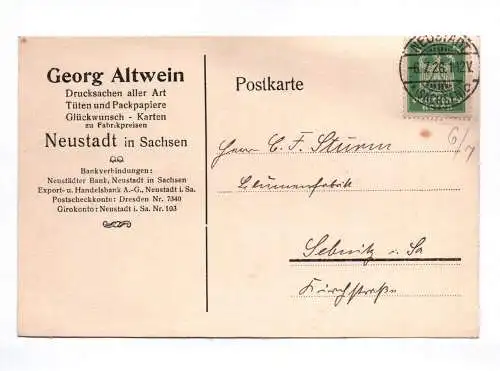 Georg Altwein
Drucksachen aller Art
Tüten und Packpapiere
Glückwunsch - Karten
zu Fabrikpreisen
Neustadt in Sachsen
Bankverbindungen:
Neustädter Bank, Neustadt in Sachsen
Export- u. Handelsbank A.-G., Neustadt i. Sa.
Postscheckkonto: Dresden Nr. 7340
Girokonto: Neustadt i. Sa. Nr. 103
Postkarte
NEUSTADT
-6.7.26. 11-12V.
6/7
Herrn C. F. Sturm
Blumenfabrik
Sebnitz i. Sa
Kirchstraße